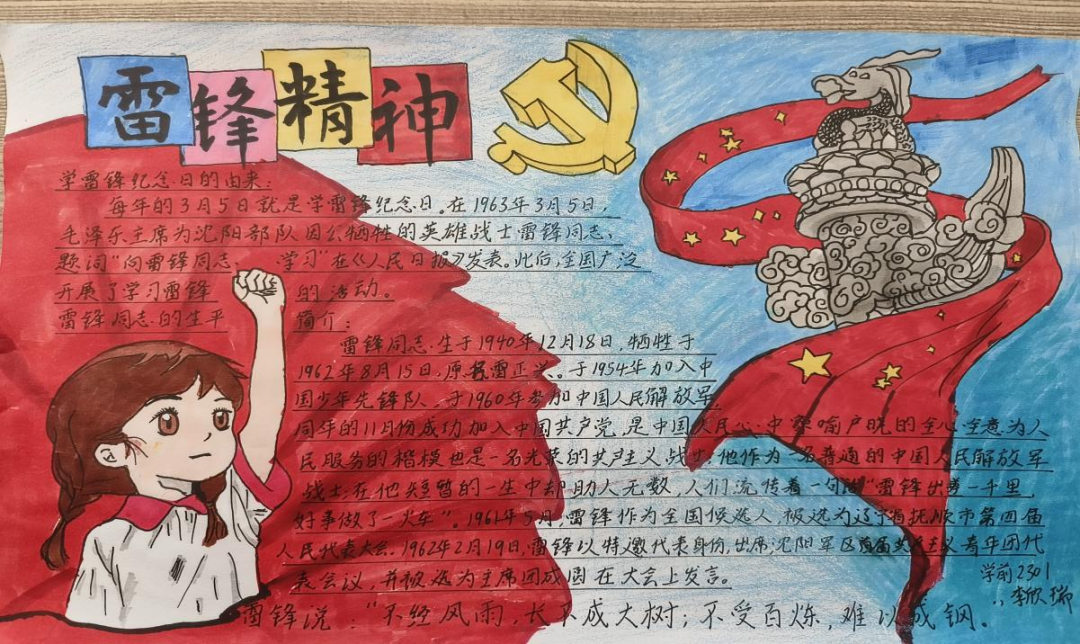 雷锋精神
学雷锋纪念日的由来：
每年的3月5日就是学雷锋纪念日。在1963年3月5日，
毛泽东主席为沈阳部队因公牺牲的英雄战士雷锋同志、
题词“向雷锋同志 学习”在《人民日报》发表。此后，全国广泛
开展了学习雷锋 的活动。
雷锋同志的生平 简介：
雷锋同志生于1940年12月18日，牺牲于
1962年8月15日，原名雷正兴。于1954年加入中
国少年先锋队，于1960年参加中国人民解放军
同年的11月份成功加入中国共产党，是中国人民心中家喻户晓的全心全意为人
民服务的楷模也是一名光荣的共产主义战士；他作为一名普通的中国人民解放军
战士；在他短暂的一生中却助人无数，人们流传着一句话“雷锋出差一千里，
好事做了一火车”。1961年5月，雷锋作为全国候选人，被选为辽宁省抚顺市第四届
人民代表大会。1962年2月19日，雷锋以特邀代表身份，出席沈阳军区首届共产主义青年团代
表会议，并被选为主席团成团在大会上发言。
雷锋说：“不经风雨，长不成大树；不受百炼，难以成钢。
学前2301
李欣瑞